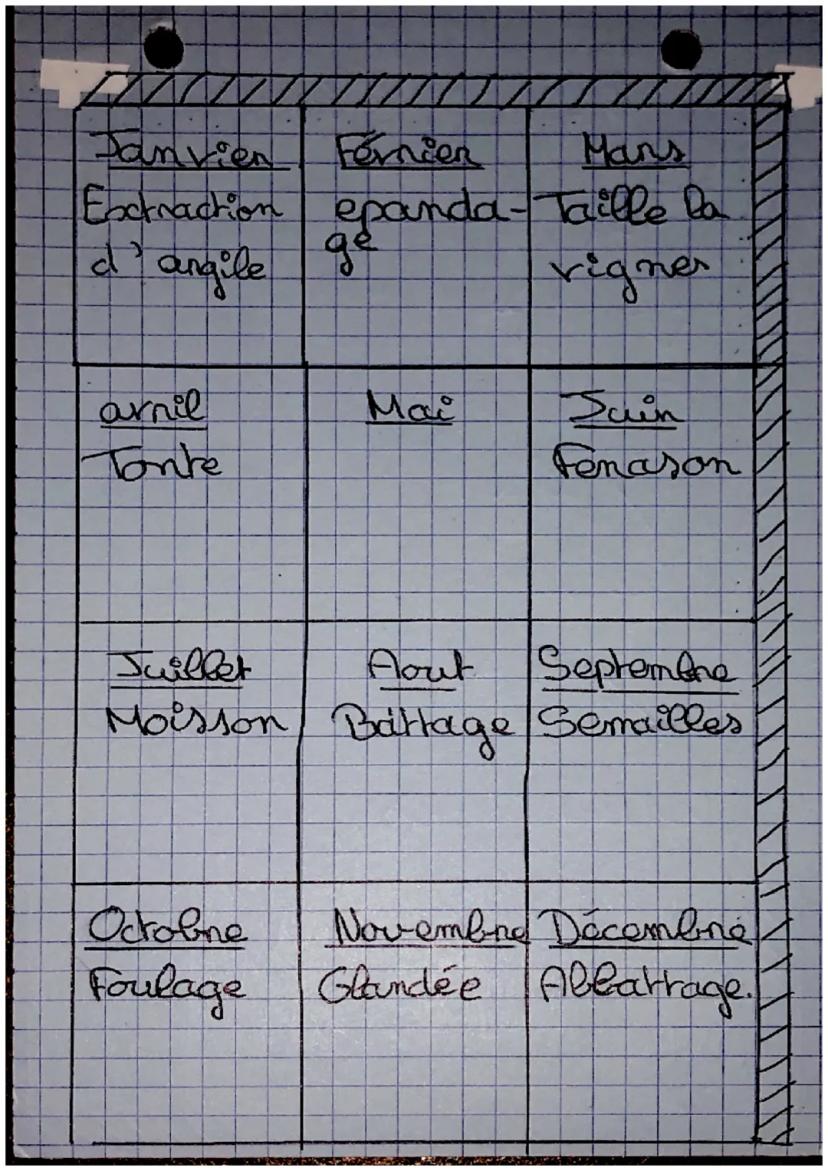 Janvier
Extraction
d'argile
Février
epanda-
ge
Mars
Taille la
vignes
avril
Tonte
Mai
Juin
Fenason
Juillet
Moisson
Aout
Battage
Septembre
Semailles
Octobre
Foulage
Novembre
Glandée
Décembre
Abbattage.